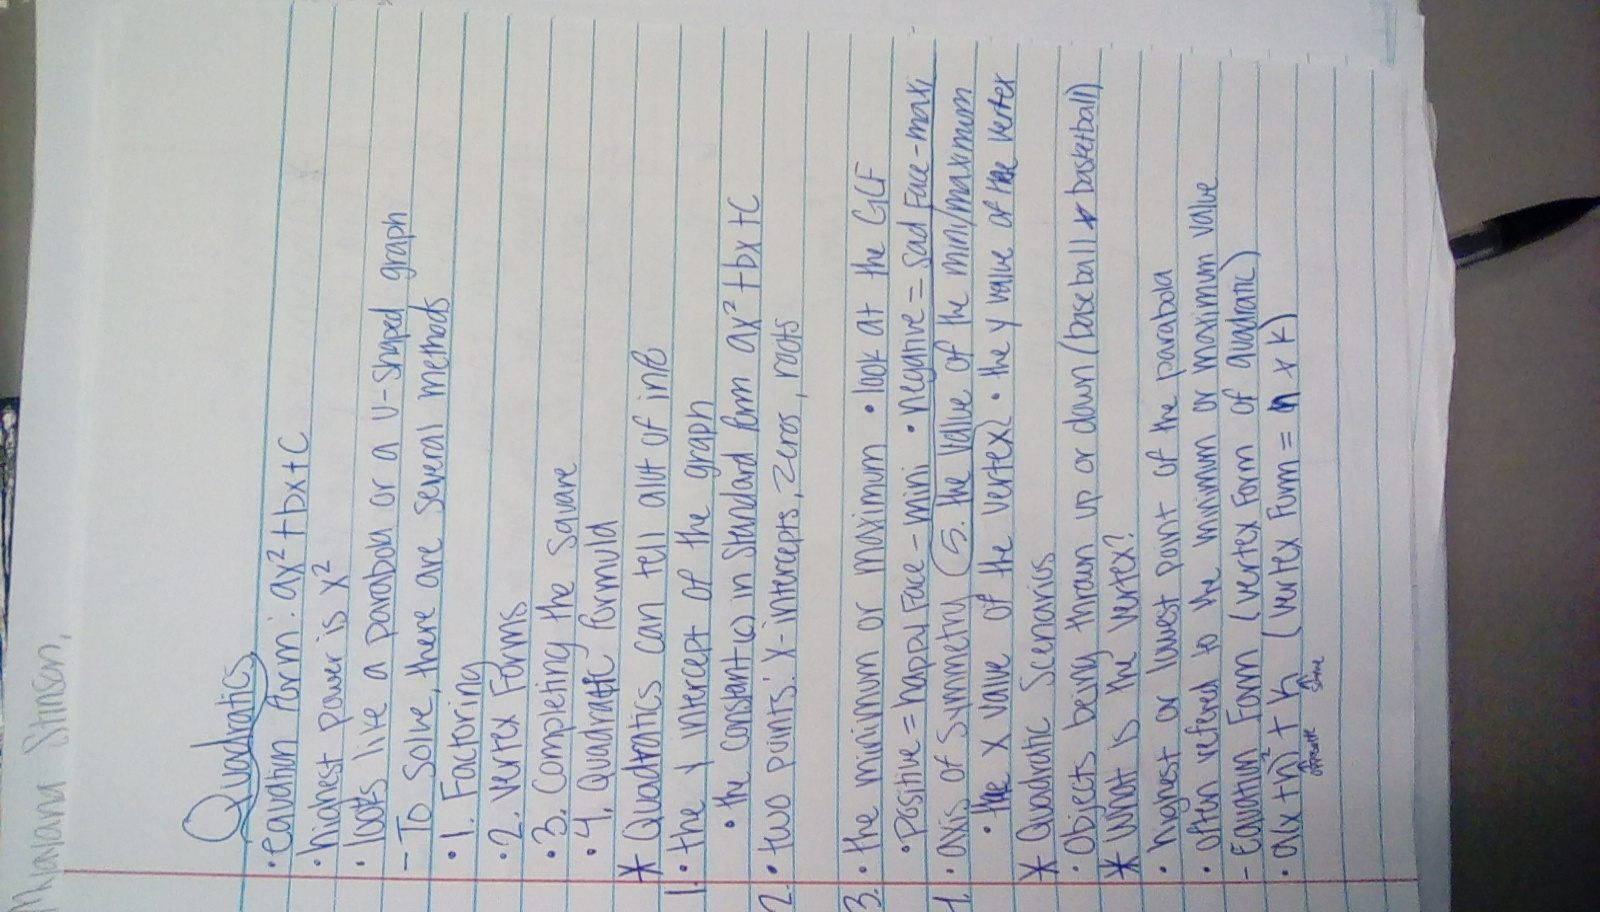 Stinson
Quadratics
• equation form: ax² + bx + c
• highest power is x²
• looks live a parabola or a U-shaped graph
- To solve, there are several methods
• 1. Factoring
• 2. vertex Forms
• 3. Completing the Square
• 4. Quadratic formula
* Quadratics can tell alot of info
1. • the y intercept of the graph
• the constant(c) in Standard form ax² + bx + c
2. • two points: x-intercepts, zeros, roots
3. • the minimum or maximum • look at the GCF
• Positive = happy Face - mini • negative = sad Face - maxi
1. • axis of Symmetry (5. the value of the mini/maximum
• the x value of the vertex) • the y value of the vertex
* Quadratic Scenarios
• Objects being thrown up or down (baseball & basketball)
* What is the vertex?
• highest or lowest point of the parabola
• often refered to the minimum or maximum value
- equation Form (vertex Form of quadratic)
• a(x + h)² + k (vertex Form = h x k)
opposite same